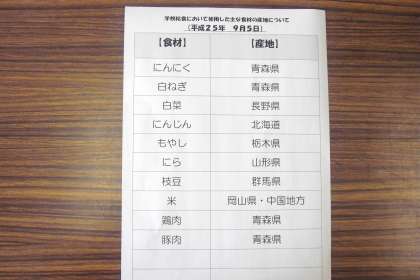 学校給食において使用した主な食材の産地について
(平成25年 9月5日)
【食材】 【産地】
にんにく 青森県
白ねぎ 青森県
白菜 長野県
にんじん 北海道
もやし 栃木県
にら 山形県
枝豆 群馬県
米 岡山県・中国地方
鶏肉 青森県
豚肉 青森県